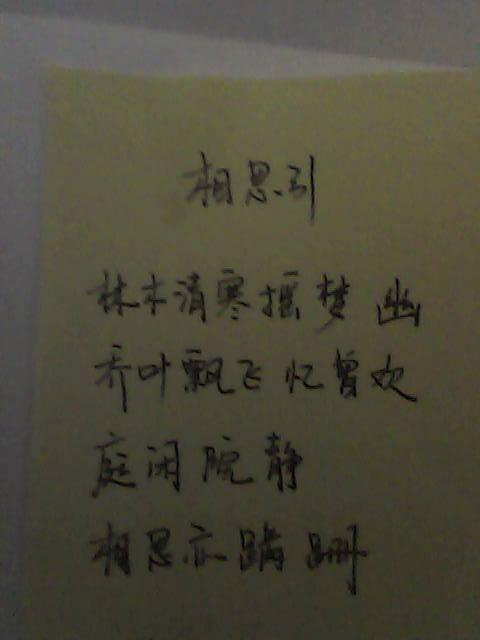 相思引
林木清寒摇梦幽
乔叶飘飞忆曾欢
庭闲院静
相思亦蹒跚